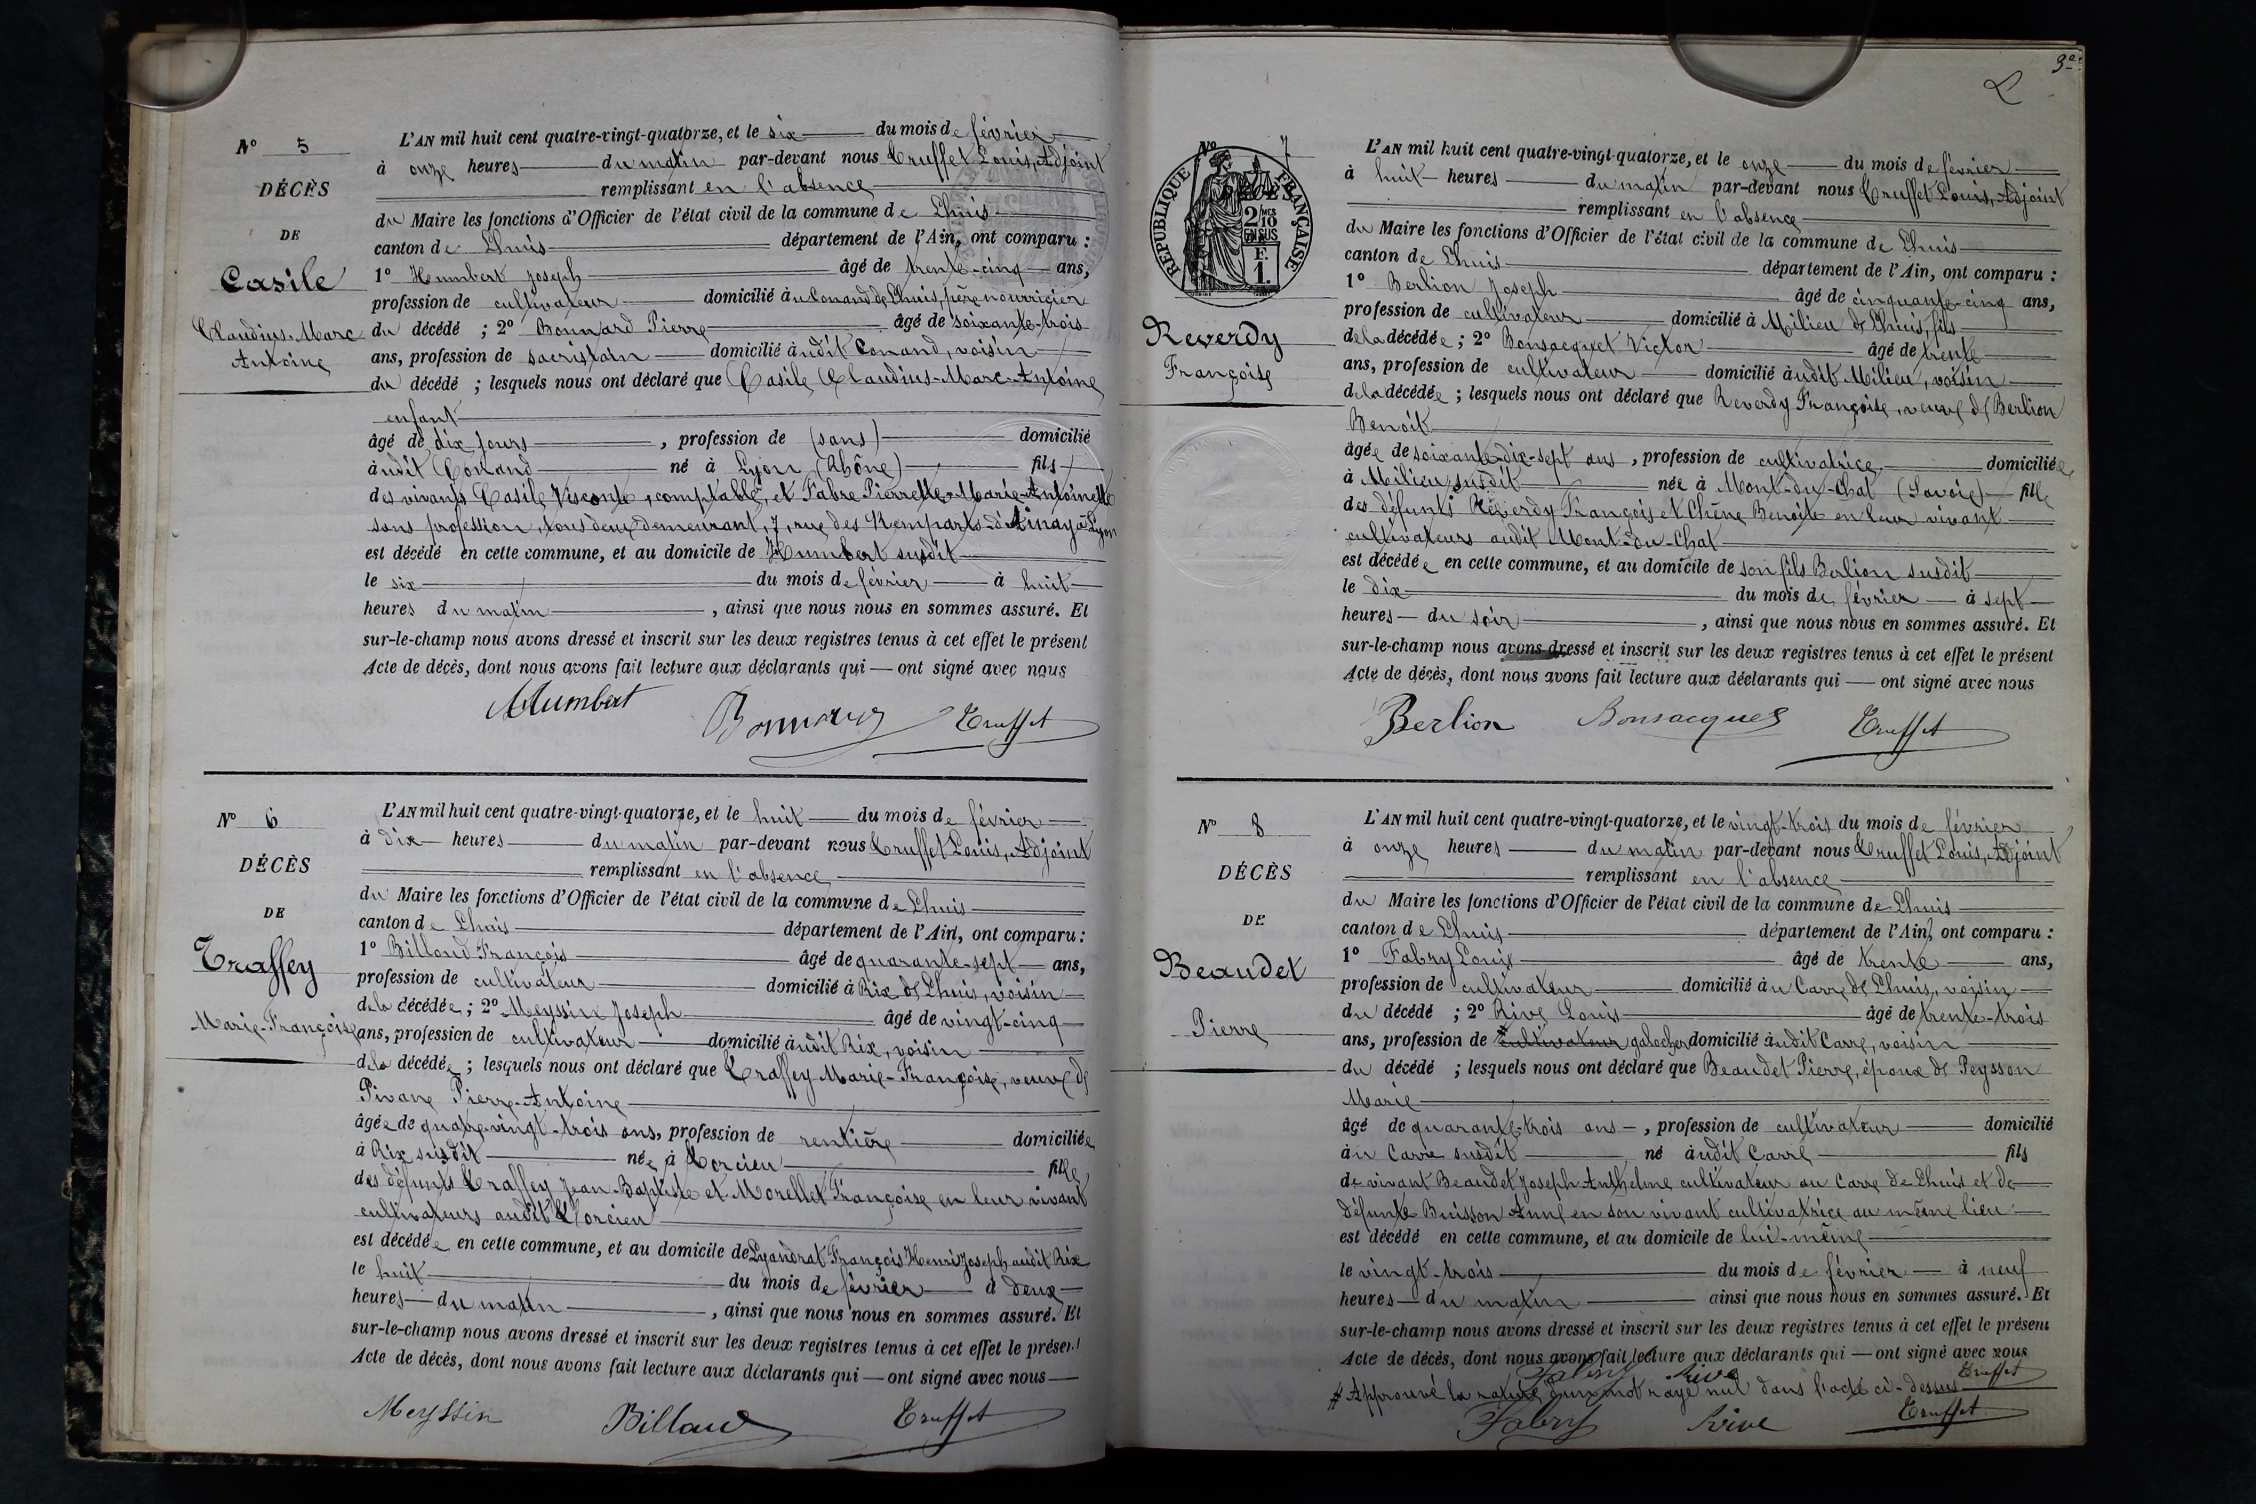 N° 5
DÉCÈS
DE
Casile
Claudius-Marc
Antoine
L'AN mil huit cent quatre-vingt-quatorze, et le six du mois de février
à onze heures du matin par-devant nous Truffet Louis, Adjoint
remplissant en l'absence
du Maire les fonctions d'Officier de l'état civil de la commune de Lhuis
canton de Lhuis département de l'Ain, ont comparu :
1° Humbert Joseph âgé de trente-cinq ans,
profession de cultivateur domicilié à u Conand de Lhuis, père nourricier
du décédé ; 2° Bonnard Pierre âgé de soixante-trois
ans, profession de sacristain domicilié audit Conand, voisin
du décédé ; lesquels nous ont déclaré que Casile Claudius-Marc-Antoine
enfant
âgé de dix jours , profession de (sans) domicilié
audit Conand né à Lyon (Rhône) fils
des vivants Casile Visconte, comptable, et Fabre Pierrette-Marie-Antoinette
sans profession, tous deux demeurant, 7, rue des Remparts-d'Ainay à Lyon
est décédé en cette commune, et au domicile de Humbert susdit
le six du mois de février à huit
heures du matin , ainsi que nous nous en sommes assuré. Et
sur-le-champ nous avons dressé et inscrit sur les deux registres tenus à cet effet le présent
Acte de décès, dont nous avons fait lecture aux déclarants qui — ont signé avec nous
Humbert Bonnard Truffet
N° 6
DÉCÈS
DE
Traffey
Marie-Françoise
L'AN mil huit cent quatre-vingt-quatorze, et le huit du mois de février
à dix heures du matin par-devant nous Truffet Louis, Adjoint
remplissant en l'absence
du Maire les fonctions d'Officier de l'état civil de la commune de Lhuis
canton de Lhuis département de l'Ain, ont comparu :
1° Billond François âgé de quarante-sept ans,
profession de cultivateur domicilié à Rix de Lhuis, voisin
de la décédée ; 2° Meyssin Joseph âgé de vingt-cinq
ans, profession de cultivateur domicilié audit Rix, voisin
de la décédée ; lesquels nous ont déclaré que Traffey Marie-Françoise, veuve de
Pivane Pierre-Antoine
âgée de quatre-vingt-trois ans, profession de rentière domiciliée
à Rix susdit née à Torcieu fille
des défunts Traffey Jean-Baptiste et Morellet Françoise en leur vivant
cultivateurs audit Torcieu
est décédée en cette commune, et au domicile de Lyandrat François Henri Joseph audit Rix
le huit du mois de février à deux
heures du matin , ainsi que nous nous en sommes assuré. Et
sur-le-champ nous avons dressé et inscrit sur les deux registres tenus à cet effet le présent
Acte de décès, dont nous avons fait lecture aux déclarants qui — ont signé avec nous
Meyssin Billaud Truffet
3e
N° 7
RÉPUBLIQUE FRANÇAISE
2/10 EN SUS
F. 1.
Reverdy
Françoise
L'AN mil huit cent quatre-vingt-quatorze, et le onze du mois de février
à huit heures du matin par-devant nous Truffet Louis, Adjoint
remplissant en l'absence
du Maire les fonctions d'Officier de l'état civil de la commune de Lhuis
canton de Lhuis département de l'Ain, ont comparu :
1° Berlion Joseph âgé de cinquante-cinq ans,
profession de cultivateur domicilié à Milieu de Lhuis, fils
de la décédée ; 2° Bonsacquet Victor âgé de trente
ans, profession de cultivateur domicilié audit Milieu, voisin
de la décédée ; lesquels nous ont déclaré que Reverdy Françoise, veuve de Berlion
Benoît
âgée de soixante-dix-sept ans , profession de cultivatrice domiciliée
à Milieu susdit née à Mont-du-Chat (Savoie) fille
des défunts Reverdy François et Chêne Benoite en leur vivant
cultivateurs audit Mont-du-Chat
est décédée en cette commune, et au domicile de son fils Berlion susdit
le dix du mois de février à sept
heures du soir , ainsi que nous nous en sommes assuré. Et
sur-le-champ nous avons dressé et inscrit sur les deux registres tenus à cet effet le présent
Acte de décès, dont nous avons fait lecture aux déclarants qui — ont signé avec nous
Berlion Bonsacquet Truffet
N° 8
DÉCÈS
DE
Beaudet
Pierre
L'AN mil huit cent quatre-vingt-quatorze, et le vingt-trois du mois de février
à onze heures du matin par-devant nous Truffet Louis, Adjoint
remplissant en l'absence
du Maire les fonctions d'Officier de l'état civil de la commune de Lhuis
canton de Lhuis département de l'Ain, ont comparu :
1° Fabry Louis âgé de trente ans,
profession de cultivateur domicilié à u Carre de Lhuis, voisin
du décédé ; 2° Rive Louis âgé de trente-trois
ans, profession de cultivateur galocher domicilié audit Carre, voisin
du décédé ; lesquels nous ont déclaré que Beaudet Pierre, époux de Peysson
Marie
âgé de quarante-trois ans , profession de cultivateur domicilié
au Carre susdit né audit Carre fils
de vivant Beaudet Joseph Anthelme cultivateur au Carre de Lhuis et de
défunte Buisson Anne en son vivant cultivatrice au même lieu
est décédé en cette commune, et au domicile de lui-même
le vingt-trois du mois de février à neuf
heures du matin ainsi que nous nous en sommes assuré. Et
sur-le-champ nous avons dressé et inscrit sur les deux registres tenus à cet effet le présent
Acte de décès, dont nous avons fait lecture aux déclarants qui — ont signé avec nous
Fabry Rive Truffet
# Approuvé la rature d'un mot rayé nul dans l'acte ci-dessus
Fabry Rive Truffet